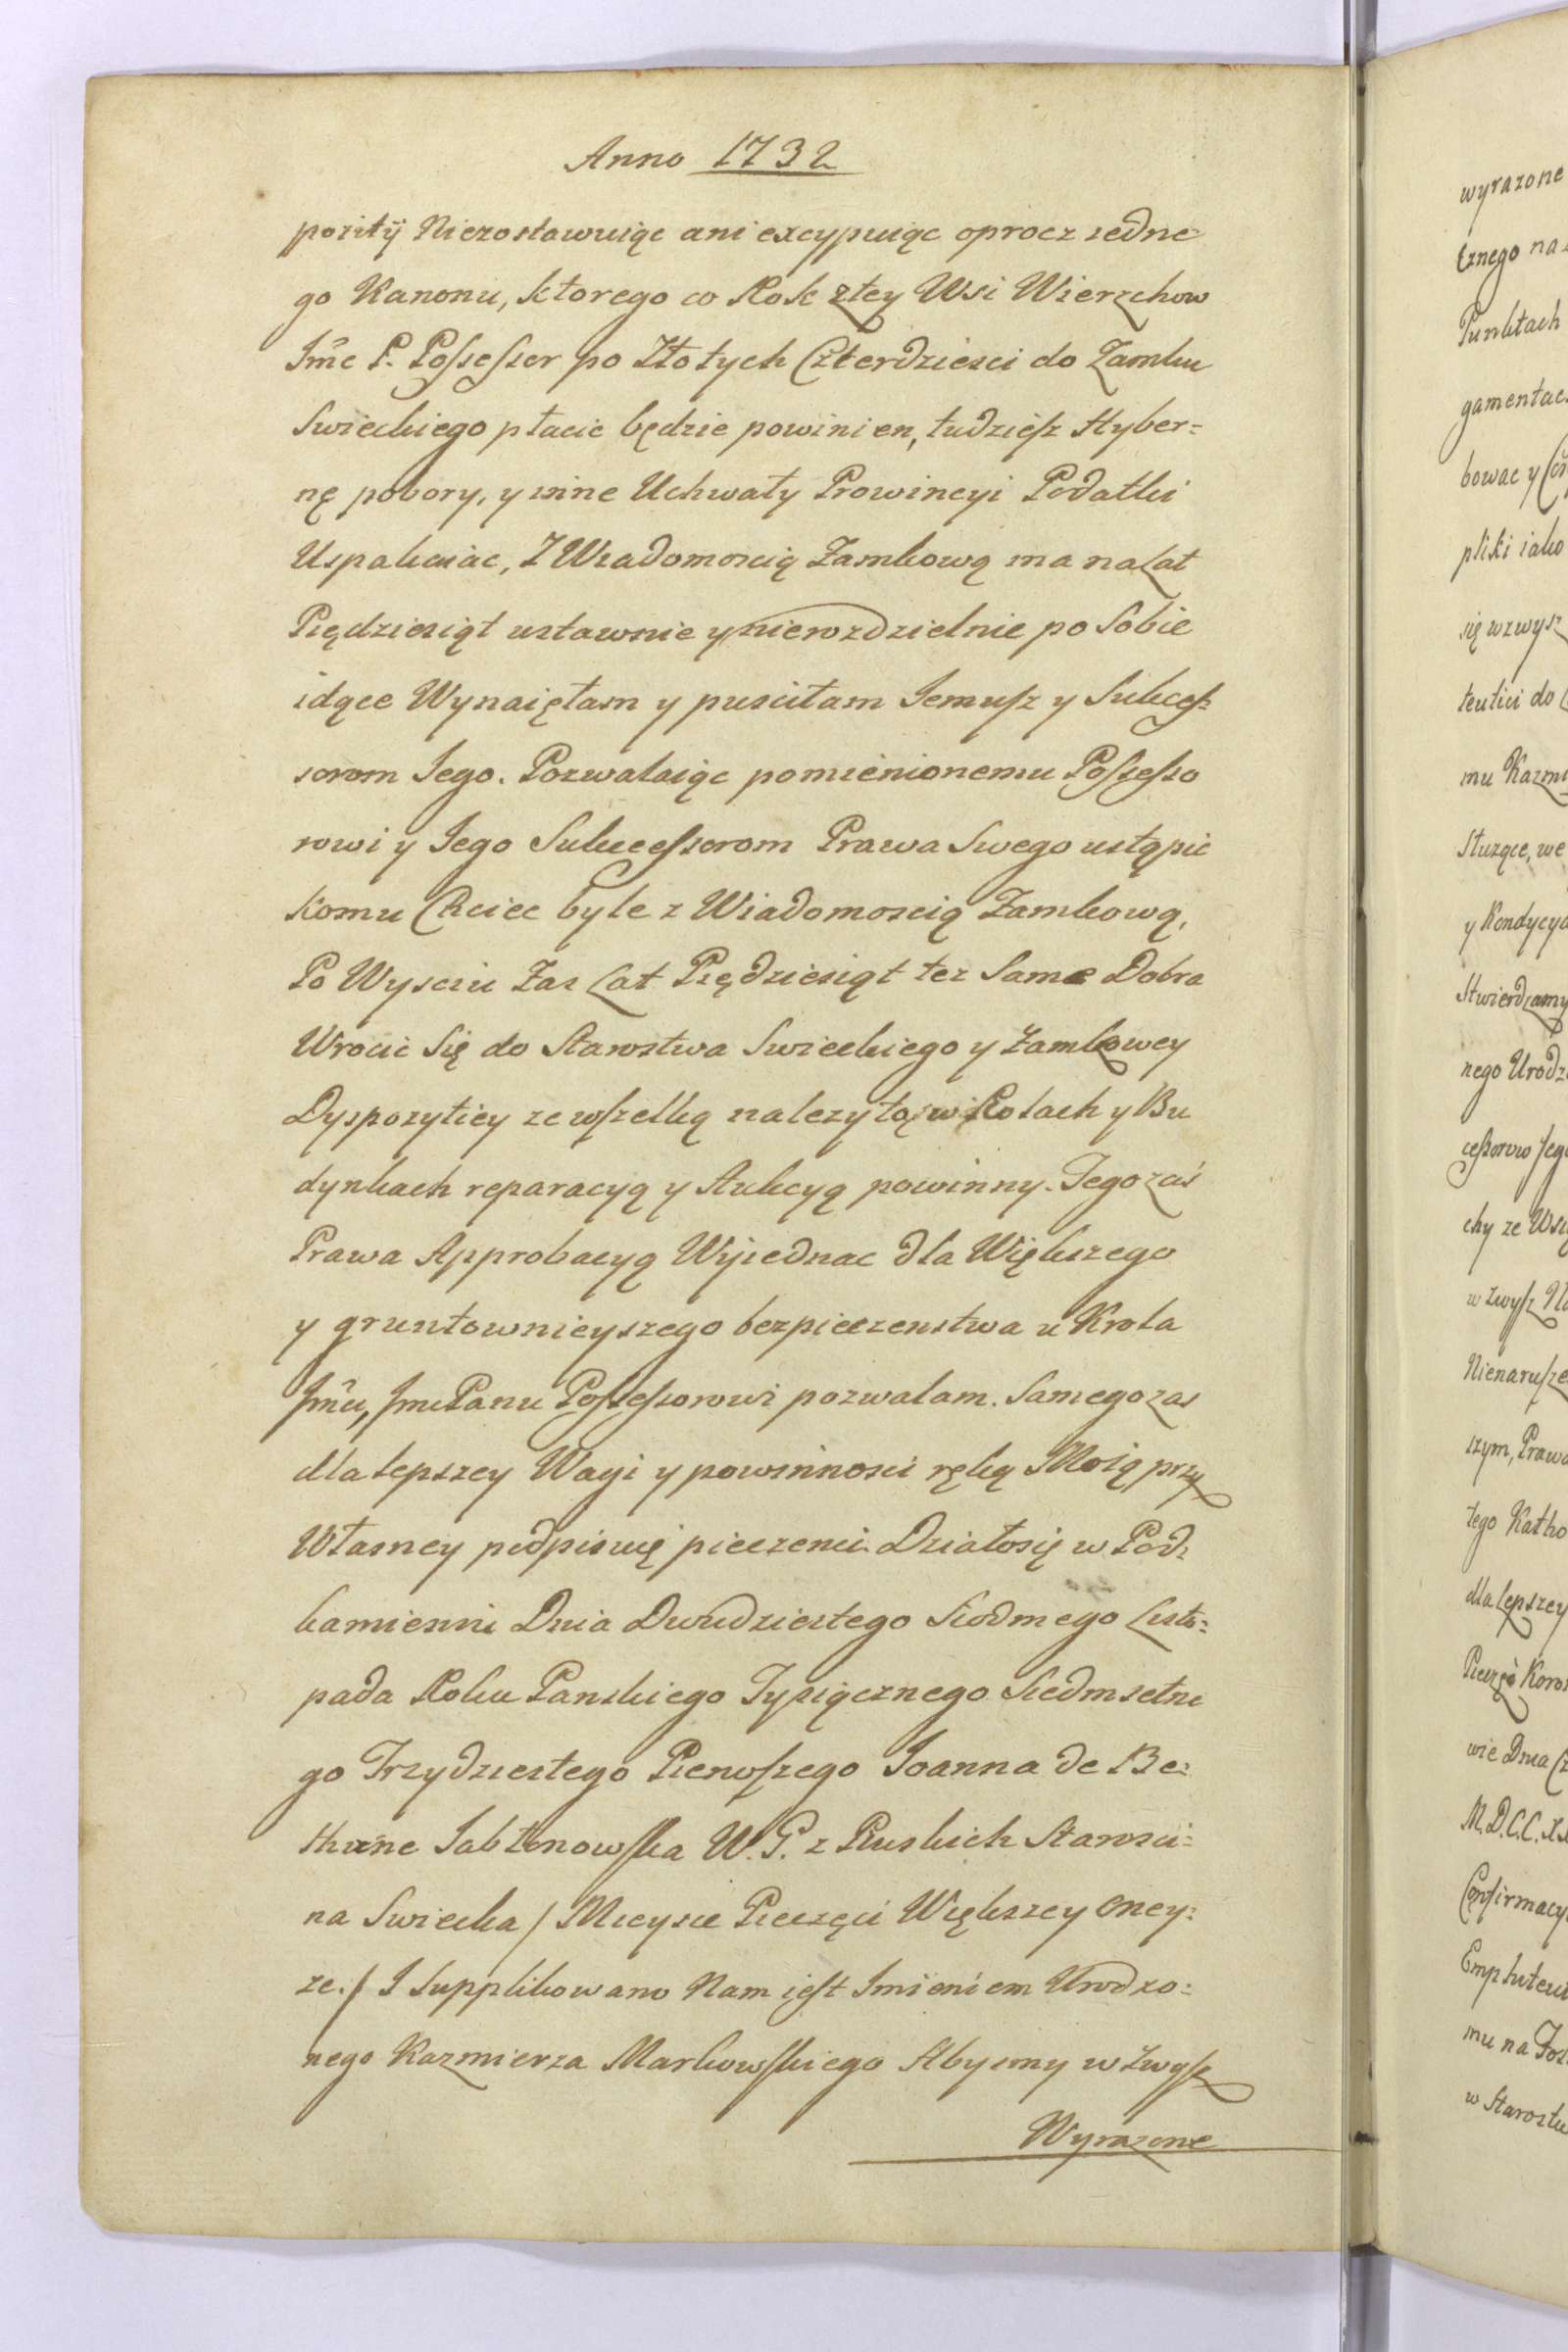 Anno 1732
pozitÿ Niezostawuiąc ani excypuiąc oprocz iedne
go Kanonu, ktorego co Rok ztey Wsi Wierzchow
Jmc P. Possessor po Złotych Czterdziesci do Zamku
Swieckiego płacic będzie powinien, tudziesz Hyber=
nę pobory, y inne Uchwały Prowincyi Podatki
Uspakaiac, Z Wiadomoscią Zamkową ma na Lat
Piędziesiąt ustawnie y nierozdzielnie po Sobie
idące Wynaięłam y pusciłam Jemusz y Sukces=
sorom Jego. Pozwalaiąc pomienionemu Possesso
rowi y Jego Sukcessorom Prawa Swego ustąpic
komu Chciec byle z Wiadomoscią Zamkową,
Po Wysciu Zas Lat Piędziesiąt tez Same Dobra
Wrocic Się do Starostwa Swieckiego y Zamkowey
Dyspozytiey ze wszelką nalezytą w Rolach y Bu
dynkach reparacyą y Aukcyą powinny. Tego zaś
Prawa Approbacyą Wyiednac dla Większego
y gruntownieyszego bezpieczenstwa u Krola
Jmci, Jmc Panu Possessorowi pozwalam. Samego zas
dla lepszey Wagi y powinnosci ręką Moią przy
Własney podpisuię pieczęci. Działosię w Pod=
kamieniu Dnia Dwudziestego Siodmego Listo=
pada Roku Panskiego Tysiącznego Siedmsetne
go Trzydziestego Pierwszego Joanna de Be=
thune Jabłonowska W. G. z Ruskich Starosci=
na Swiecka / Mieysce Pieczęci Większey oney=
ze. / I Supplikowano Nam iest Imieniem Urodzo=
nego Kazmierza Markowskiego Abysmy w Zwysz
Wyrazone
wyrazone
cznego na
Punktach
gamentac
bowac y
pliki iako
się wzwysz
teutici do
mu Kazmi
Sluzące, we
y Kondycya
Stwierdzamy
nego Urodz
cessorow Jego
chy ze Wsz
w zwysz Na
Nienarusze
szym, Prawa
tego Katho
dla lepszey
Pieczęć Koron
wie Dnia
M.D.C.C.
Confirmacy
Emphiteu
mu na
w Starostw